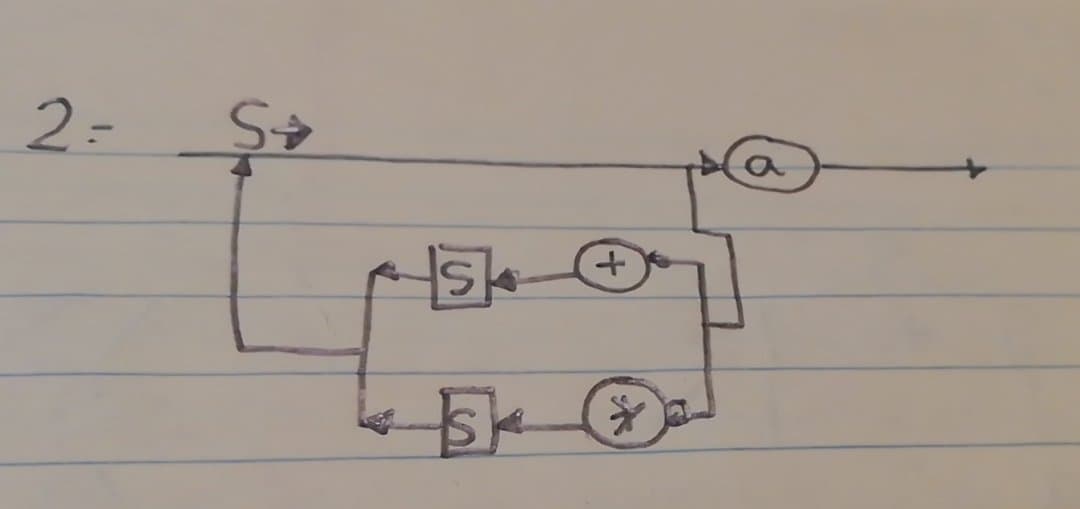 2= S→
a
S +
S *